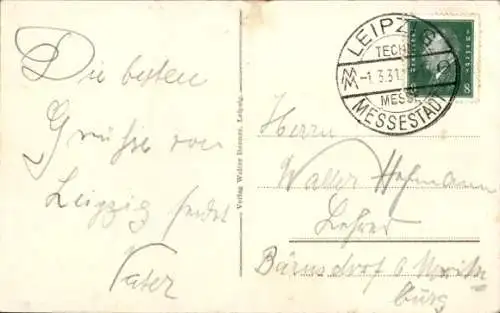 Die besten
Grüße von
Leipzig sendet
Vater
Verlag Walter Demmer, Leipzig.
LEIPZIG
TECHN.
-1.3.31.
MESSE
MESSESTADT
8
Herrn
Walter Hofmann
Lehrer
Bärnsdorf b. Moritz
burg